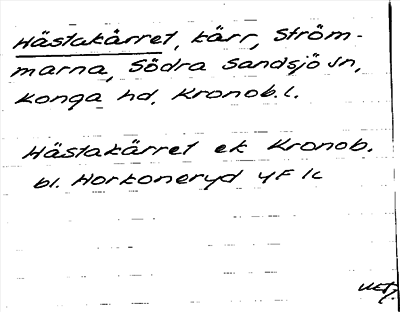 Hästakärret, kärr, Ström-
marna, Södra Sandsjö sn,
Konga hd, Kronob. l.
Hästakärret ek Kronob.
bl. Horkoneryd 4F 1c